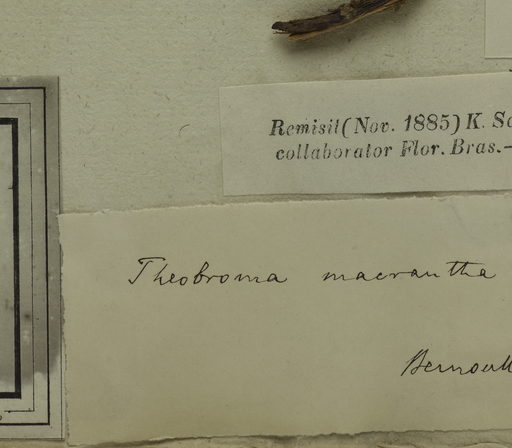 Remisit (Nov. 1885) K.
collaborator Flor. Bras.-
Theobroma macrantha